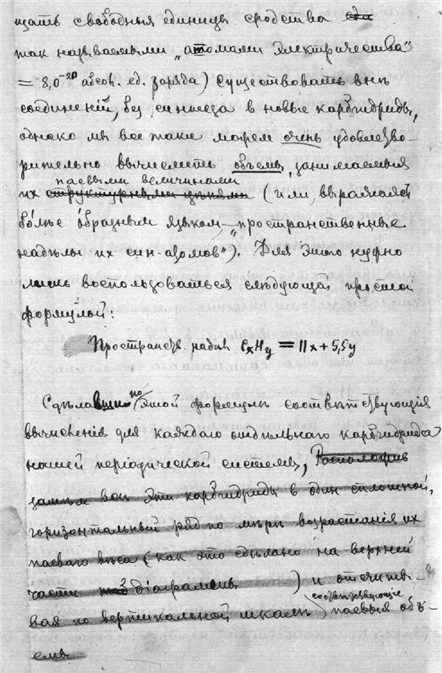 щать свободныя единицы сродства
такъ называемыми „атомами электричества"
= 8,0⁻²⁰ абсол. ед. заряда) существовать внѣ
соединеній, безъ синтеза в новые карбгидриды,
однако мы все таки можем очень удовлетво-
рительно вычислить объемы, занимаемыя
паевыми величинами
их структурными цѣпями (или, выражаясь
болѣе образным языком — „пространственные
надѣлы их син-атомов"). Для этого нужно
лишь воспользоваться слѣдующей простой
формулой:
Пространств. надѣл CxHy = 11x + 5,5y
Сдѣлавши по этой формулѣ соотвѣтствующія
вычисленія для каждаго отдѣльнаго карбгидрида
нашей періодической системы, Расположив
затѣм всѣ эти карбгидриды в один сплошной,
горизонтальный ряд по мѣрѣ возрастанія их
паеваго вѣса (как это сдѣлано на верхней
части діаграммы) и отсчиты-
соответствующие
вая по вертикальной шкалѣ паевыя объ-
емы